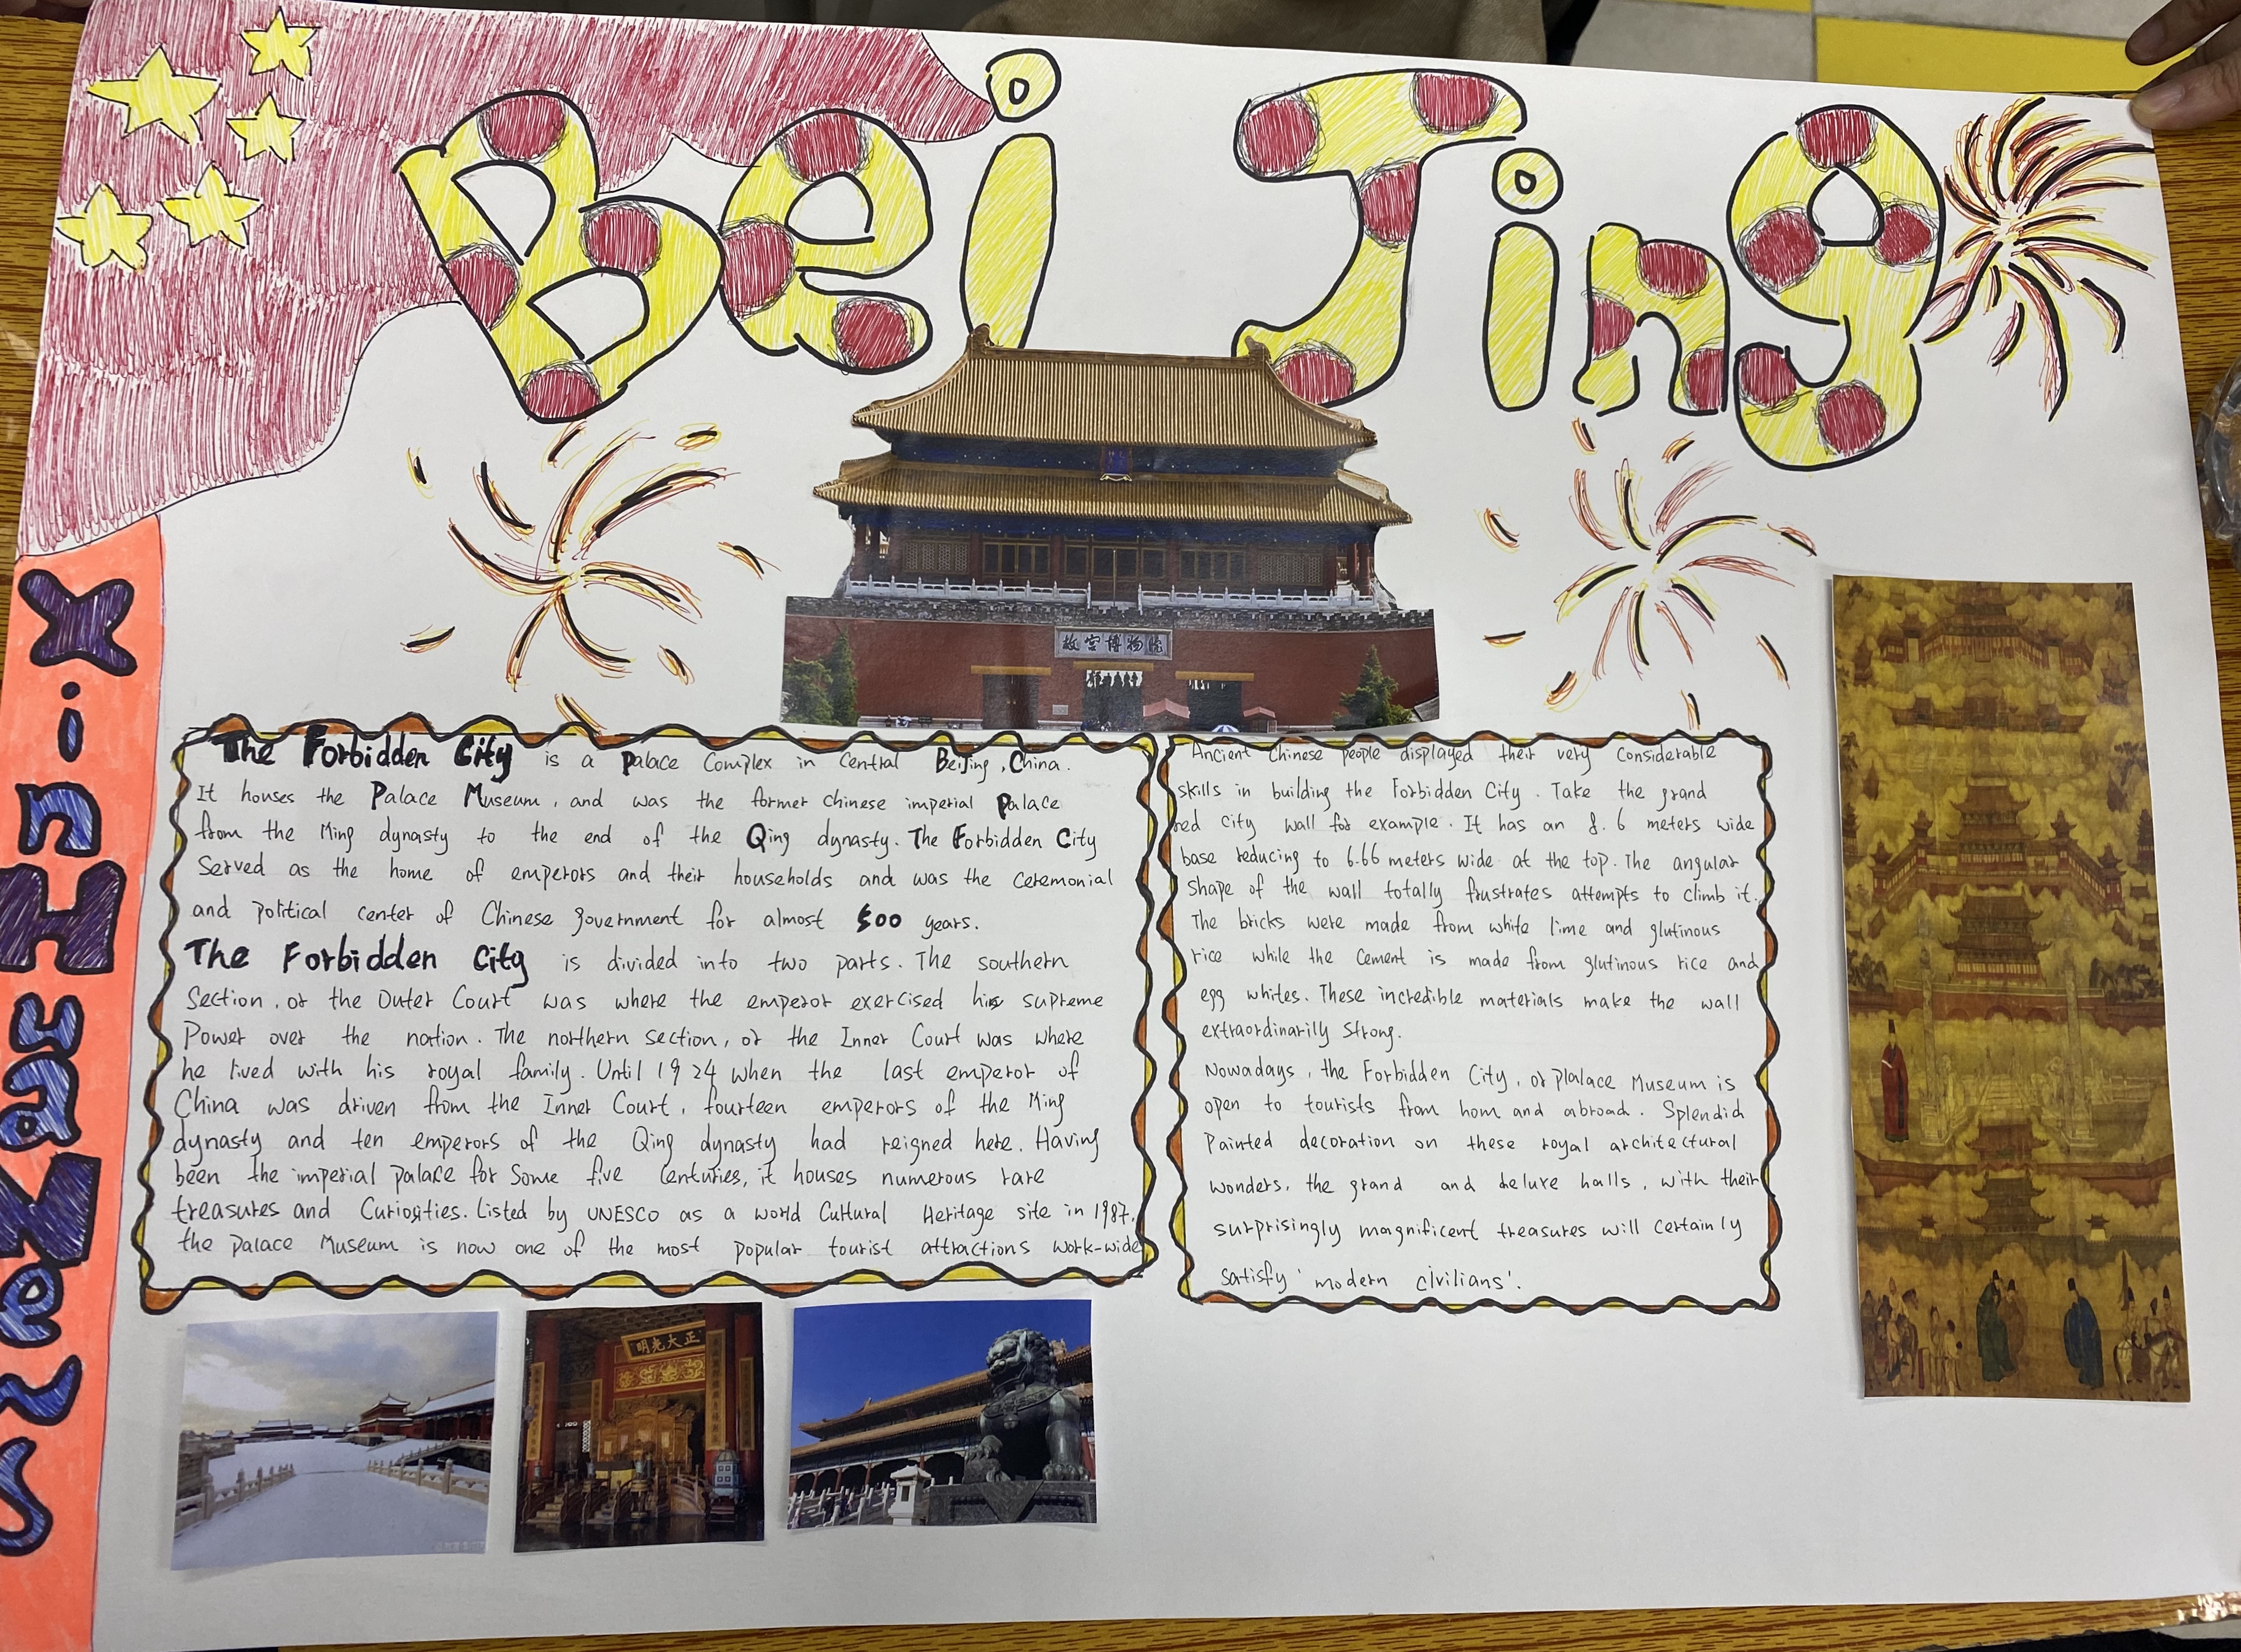 Bei Jing
故宫博物院
XinHuaNews
The Forbidden City is a Palace Complex in Central Beijing, China.
It houses the Palace Museum, and was the former Chinese imperial Palace
from the Ming dynasty to the end of the Qing dynasty. The Forbidden City
Served as the home of emperors and their households and was the ceremonial
and political center of Chinese government for almost 500 years.
The Forbidden City is divided into two parts. The southern
Section, or the Outer Court was where the emperor exercised his supreme
Power over the nation. The northern section, or the Inner Court was where
he lived with his royal family. Until 1924 when the last emperor of
China was driven from the Inner Court, fourteen emperors of the Ming
dynasty and ten emperors of the Qing dynasty had reigned here. Having
been the imperial palace for Some five Centuries, it houses numerous rare
treasures and Curiosities. Listed by UNESCO as a World Cultural Heritage site in 1987,
the Palace Museum is now one of the most popular tourist attractions work-wide
Ancient Chinese people displayed their very Considerable
skills in building the Forbidden City. Take the grand
red City wall for example. It has an 8.6 meters wide
base reducing to 6.66 meters wide at the top. The angular
shape of the wall totally frustrates attempts to climb it.
The bricks were made from white lime and glutinous
rice while the cement is made from glutinous rice and
egg whites. These incredible materials make the wall
extraordinarily strong.
Nowadays, the Forbidden City, or Plalace Museum is
open to tourists from hom and abroad. Splendid
Painted decoration on these royal architectural
wonders, the grand and deluxe halls, with their
surprisingly magnificent treasures will certainly
satisfy 'modern civilians'.
明光大正